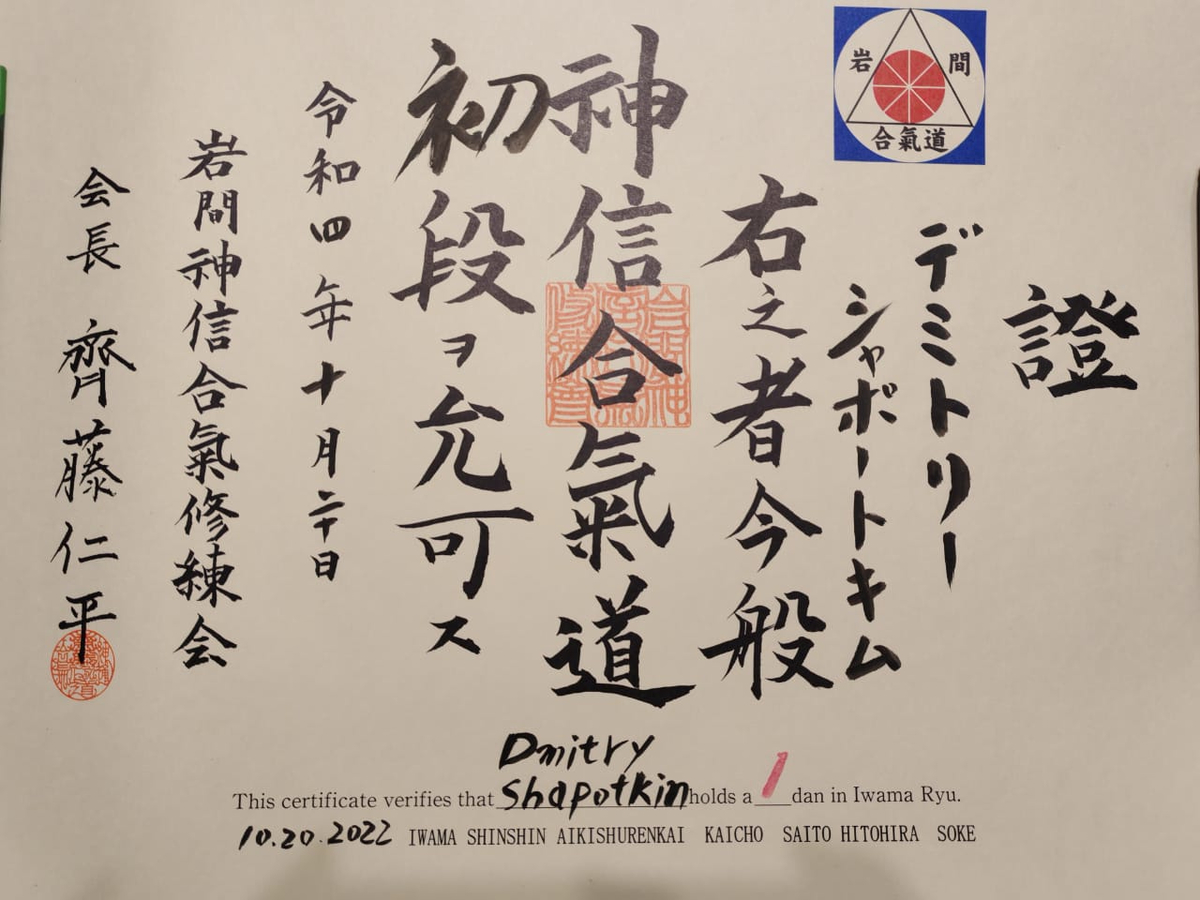 岩間
合氣道
證
デミトリー
シャボートキム
右之者今般
神信合氣道
初段ヲ允可ス
令和四年十月二十日
岩間神信合氣修練会
会長 齊藤仁平
Dmitry
This certificate verifies that Shapotkin holds a 1 dan in Iwama Ryu.
10.20.2022 IWAMA SHINSHIN AIKISHURENKAI KAICHO SAITO HITOHIRA SOKE